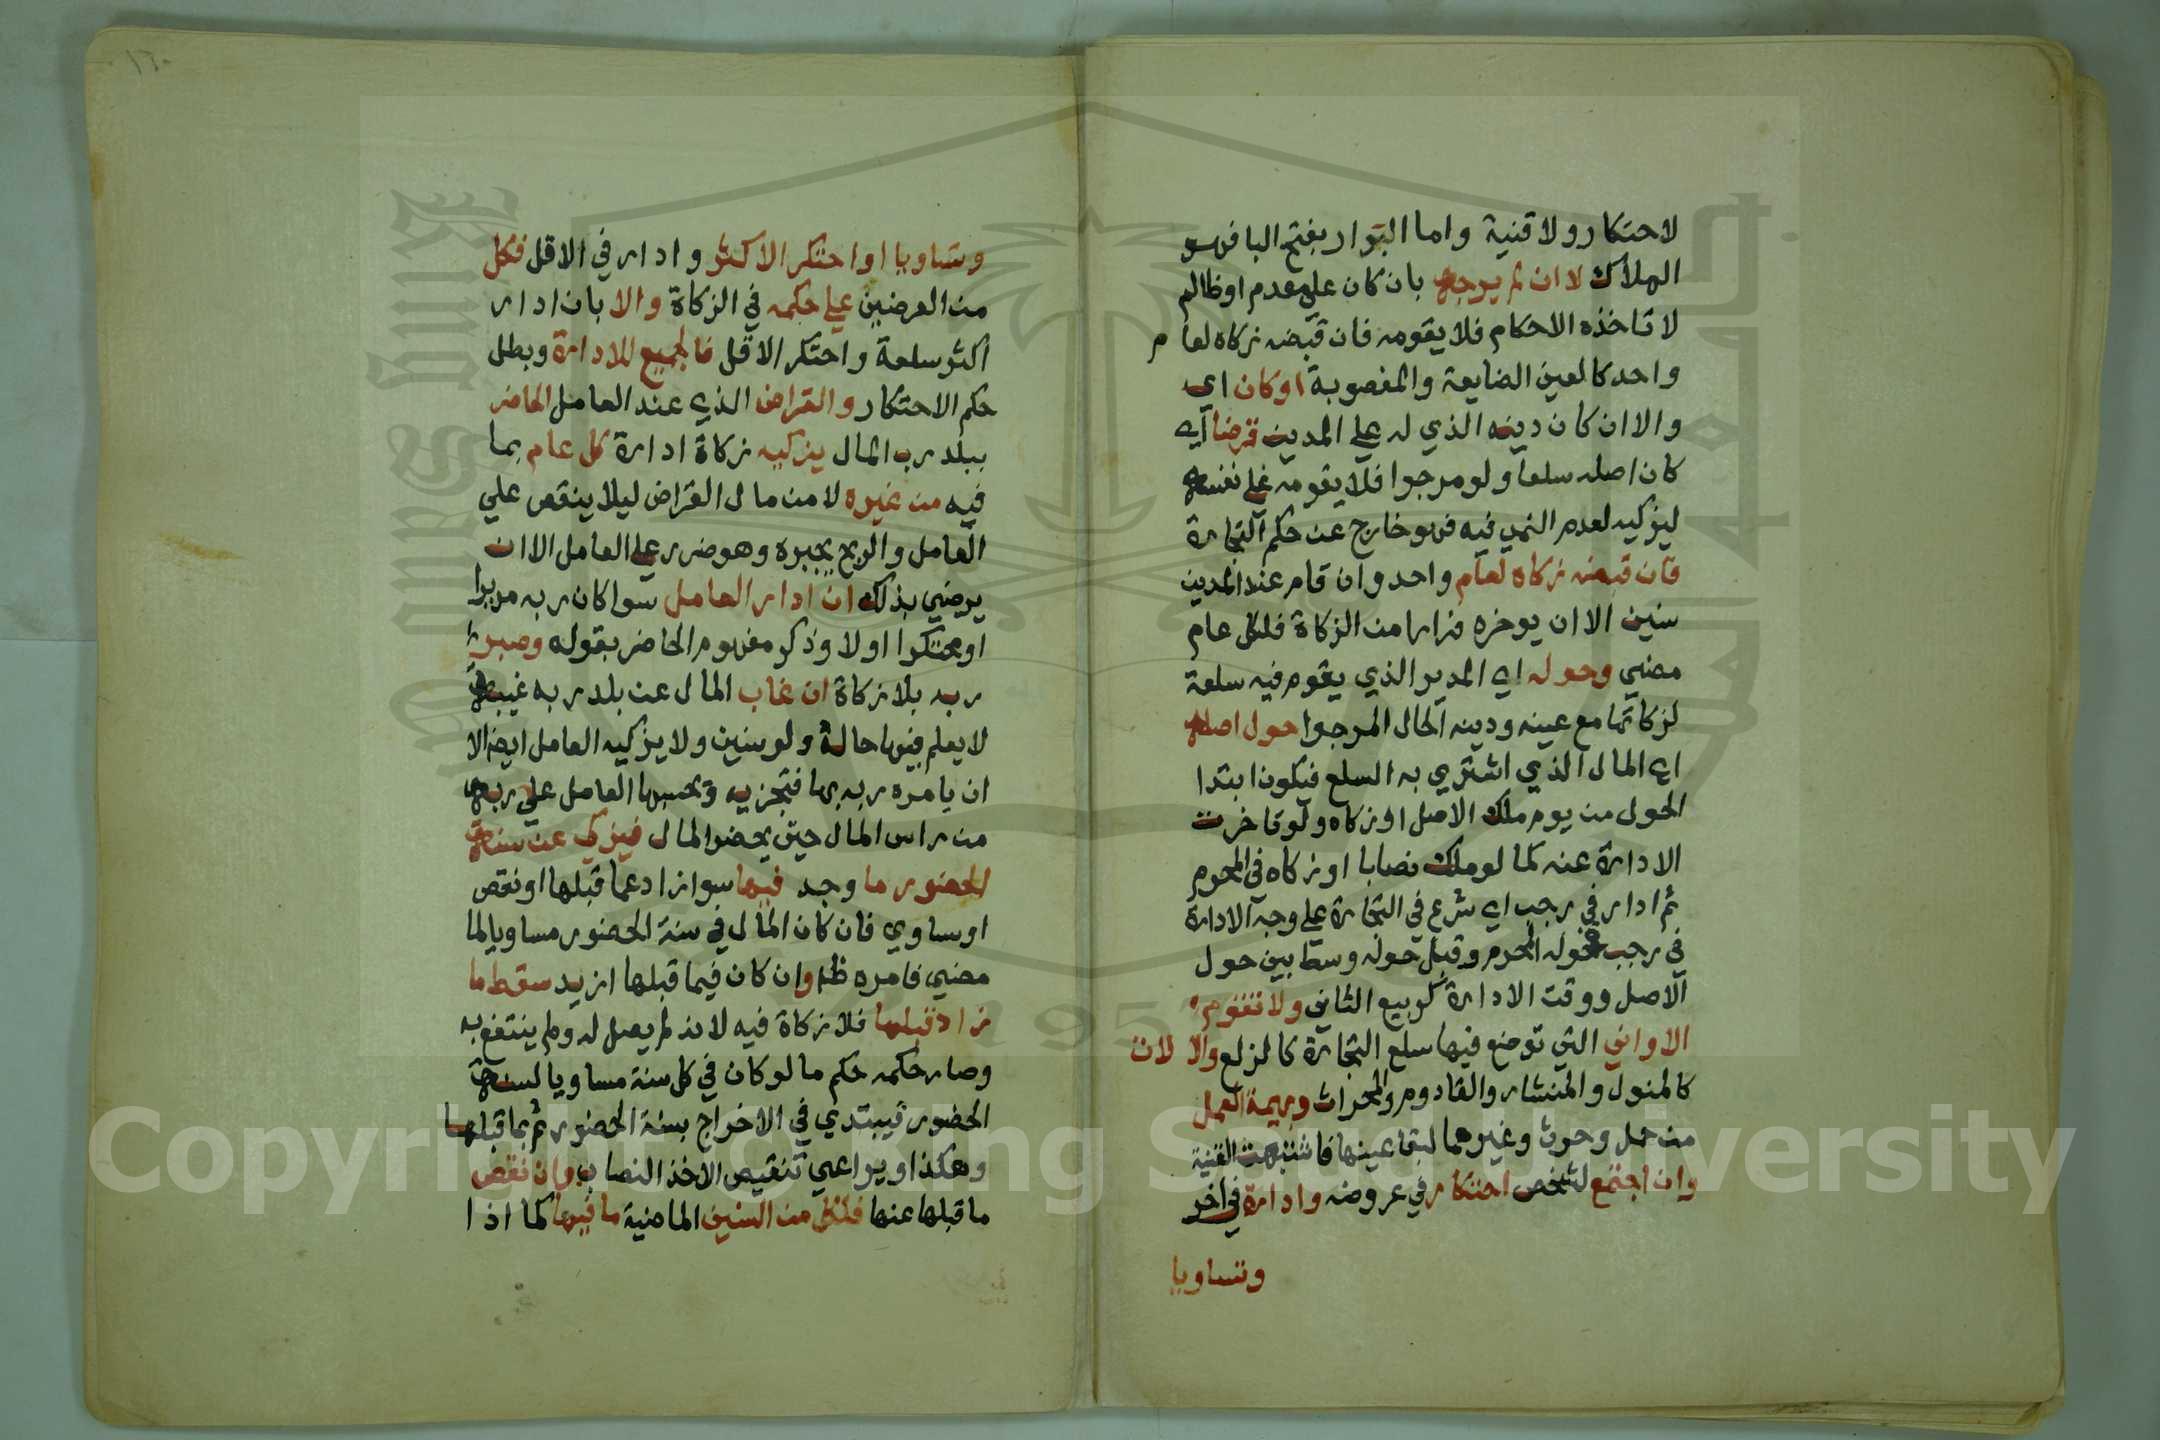 لاحتكار ولا قنية واما البوار بفتح البا فهو
الهلاك لا ان لم يرجه بان كان علي معدم او ظالم
لا تاخذه الاحكام فلا يقومه فان قبضه زكاه لعام
واحد كالعين الضايعة والمغصوبة او كان اي
والا ان كان دينه الذي له علي المدين قرضا اي
كان اصله سلعا ولو مرجوا فلا يقومه علي نفسه
ليزكيه لعدم النمي فيه فهو خارج عن حكم التجارة
فان قبضه زكاه لعام واحد وان قام عند المدين
سنين الا ان يوخره فرارا من الزكاة فلكل عام
مضي وحوله اي المدير الذي يقوم فيه سلعة
لزكاتها مع عينه ودينه الحال المرجوا حول اصله
اي المال الذي اشتري به السلع فيكون ابتدا
الحول من يوم ملك الاصل او زكاه ولو تاخرت
الادارة عنه كما لو ملك نصابا او زكاه في المحرم
ثم ادار في رجب اي شرع في التجارة علي وجه الادارة
في رجب فحوله المحرم وقيل حوله وسط بين حول
الاصل ووقت الادارة كربيع الثاني ولا تقوم
الاواني التي توضع فيها سلع التجارة كالزلع والالات
كالمنول والمنشار والقادوم والمحراث وبهيمة العمل
من حمل وحرث وغيرهما لبقا عينها فاشبهت القنية
وان اجتمع لشخص احتكار في عروضه وادارة في اخر
وتساويا
١٢٠
وتساويا او احتكر الاكثر وادار في الاقل فكل
من العرضين علي حكمه في الزكاة والا بان ادار
اكثر سلعة واحتكر الاقل فالجميع للادارة وبطل
حكم الاحتكار والقراض الذي عند العامل الحاضر
ببلد رب المال يزكيه زكاة ادارة كل عام بما
فيه من غيره لا من مال القراض ليلا ينقص علي
العامل والربح يجبره وهو ضرر علي العامل الا ان
يرضي بذلك ان ادار العامل سوا كان ربه مديرا
او محتكرا اولا وذكر مفهوم الحاضر بقوله وصبر
ربه بلا زكاة ان غاب المال عن بلد ربه غيبة
لا يعلم فيها حاله ولو سنين ولا يزكيه العامل ايضا الا
ان يامره ربه بها فتجزيه وتحسبها العامل علي ربه
من راس المال حتي يحضر المال فيزكي عن سنة
الحضور ما وجد فيها سوا زاد عما قبلها او نقص
او ساوي فان كان المال في سنة الحضور مساويا لما
مضي فامره ظ وان كان فيما قبلها ازيد سقط ما
زاد قبلها فلا زكاة فيه لانه لم يصل له ولم ينتفع به
وصار حكمه حكم ما لو كان في كل سنة مساويا لسنة
الحضور فيبتدي في الاخراج بسنة الحضور ثم بما قبلها
وهكذا ويراعي تنقيص الاخذ النصاب وان نقص
ما قبلها عنها فلكل من السنين الماضية ما فيها كما اذا
Copyright © King Saud University
1957